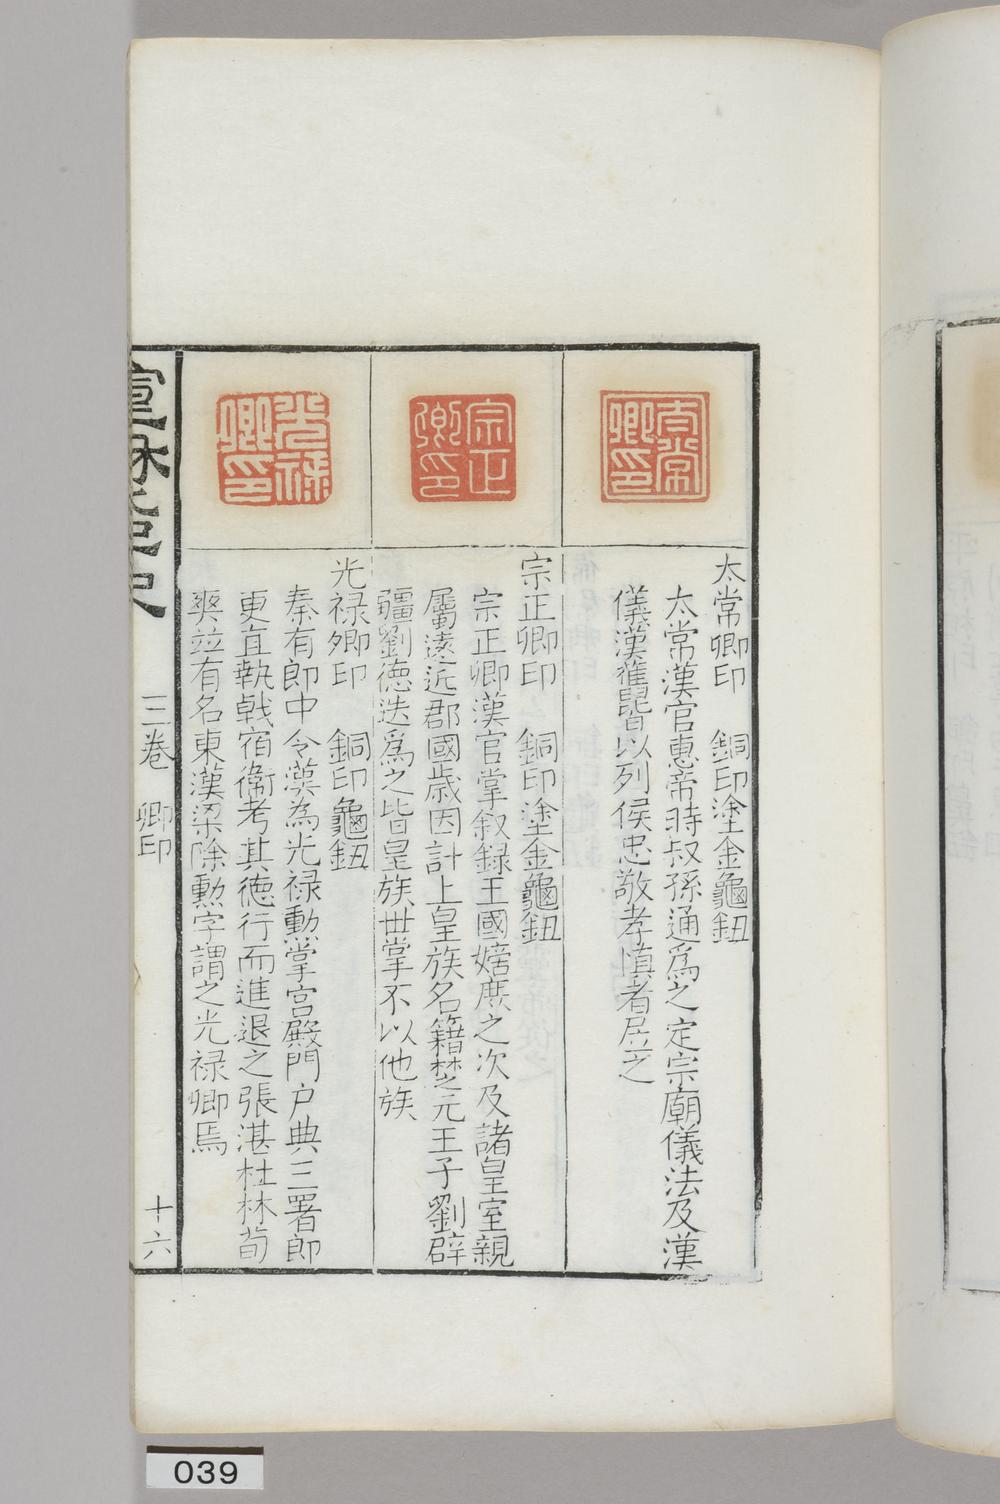 太常卿印
宗正卿印
光禄卿印
太常卿印　銅印塗金龜鈕
太常漢官惠帝時叔孫通爲之定宗廟儀法及漢
儀漢舊皆以列侯忠敬孝慎者居之
宗正卿印　銅印塗金龜鈕
宗正卿漢官掌叙録王國嫡庶之次及諸皇室親
屬遠近郡國歳因計上皇族名籍楚元王子劉辟
疆劉德迭爲之皆皇族世掌不以他族
光禄卿印　銅印龜鈕
秦有郎中令漢為光禄勲掌宮殿門户典三署郎
更直執戟宿衞考其徳行而進退之張湛杜林荀
爽竝有名東漢梁除勲字謂之光禄卿焉
宣和集古印史
三卷　卿印
十六
039